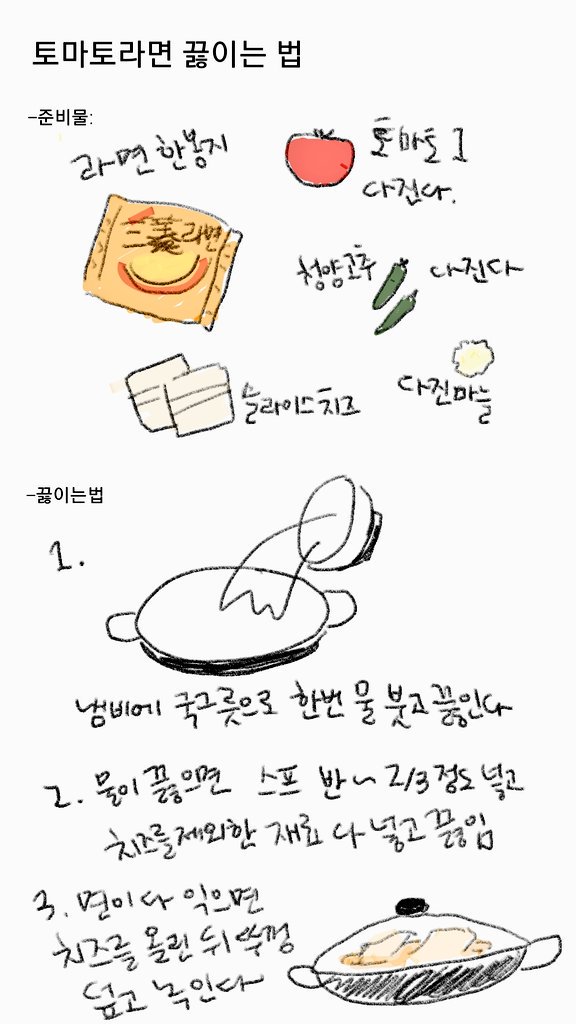 토마토라면 끓이는 법
-준비물:
라면 한봉지
토마토 1
다진다.
三養라면
청양고추
다진다
슬라이스치즈
다진마늘
-끓이는법
1.
냄비에 국그릇으로 한번 물 붓고 끓인다
2. 물이 끓으면 스프 반~2/3정도 넣고
치즈를제외한 재료 다 넣고 끓임
3. 면이 다 익으면
치즈를 올린 뒤 뚜껑
덮고 녹인다